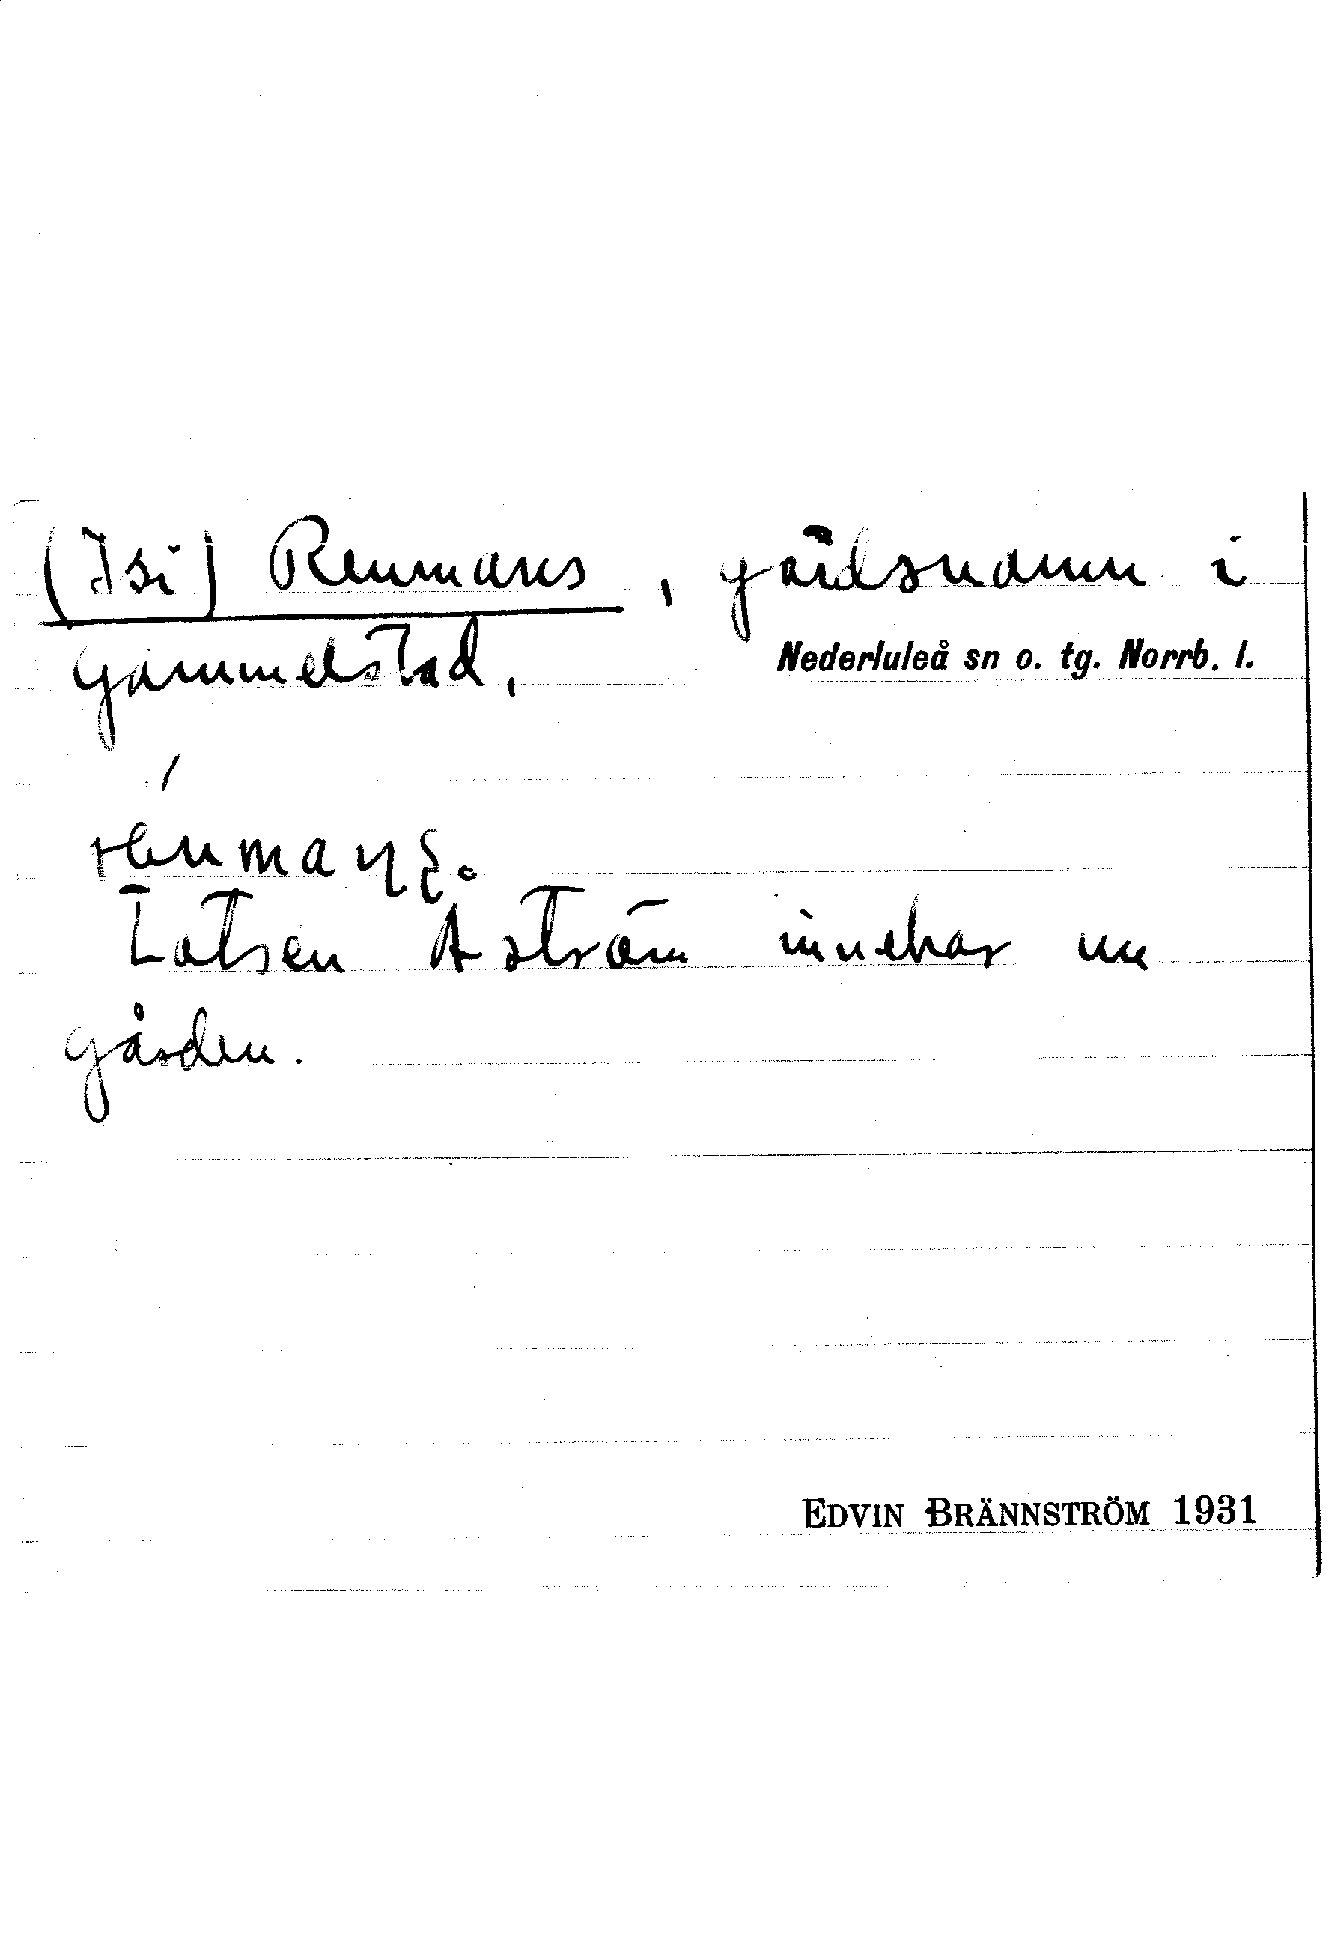 (Isi) Renmans, gårdsnamn i
Gammelstad, Nederluleå sn o. tg. Norrb. l.
Lotsen Åström innehar nu
gården.
EDVIN BRÄNNSTRÖM 1931